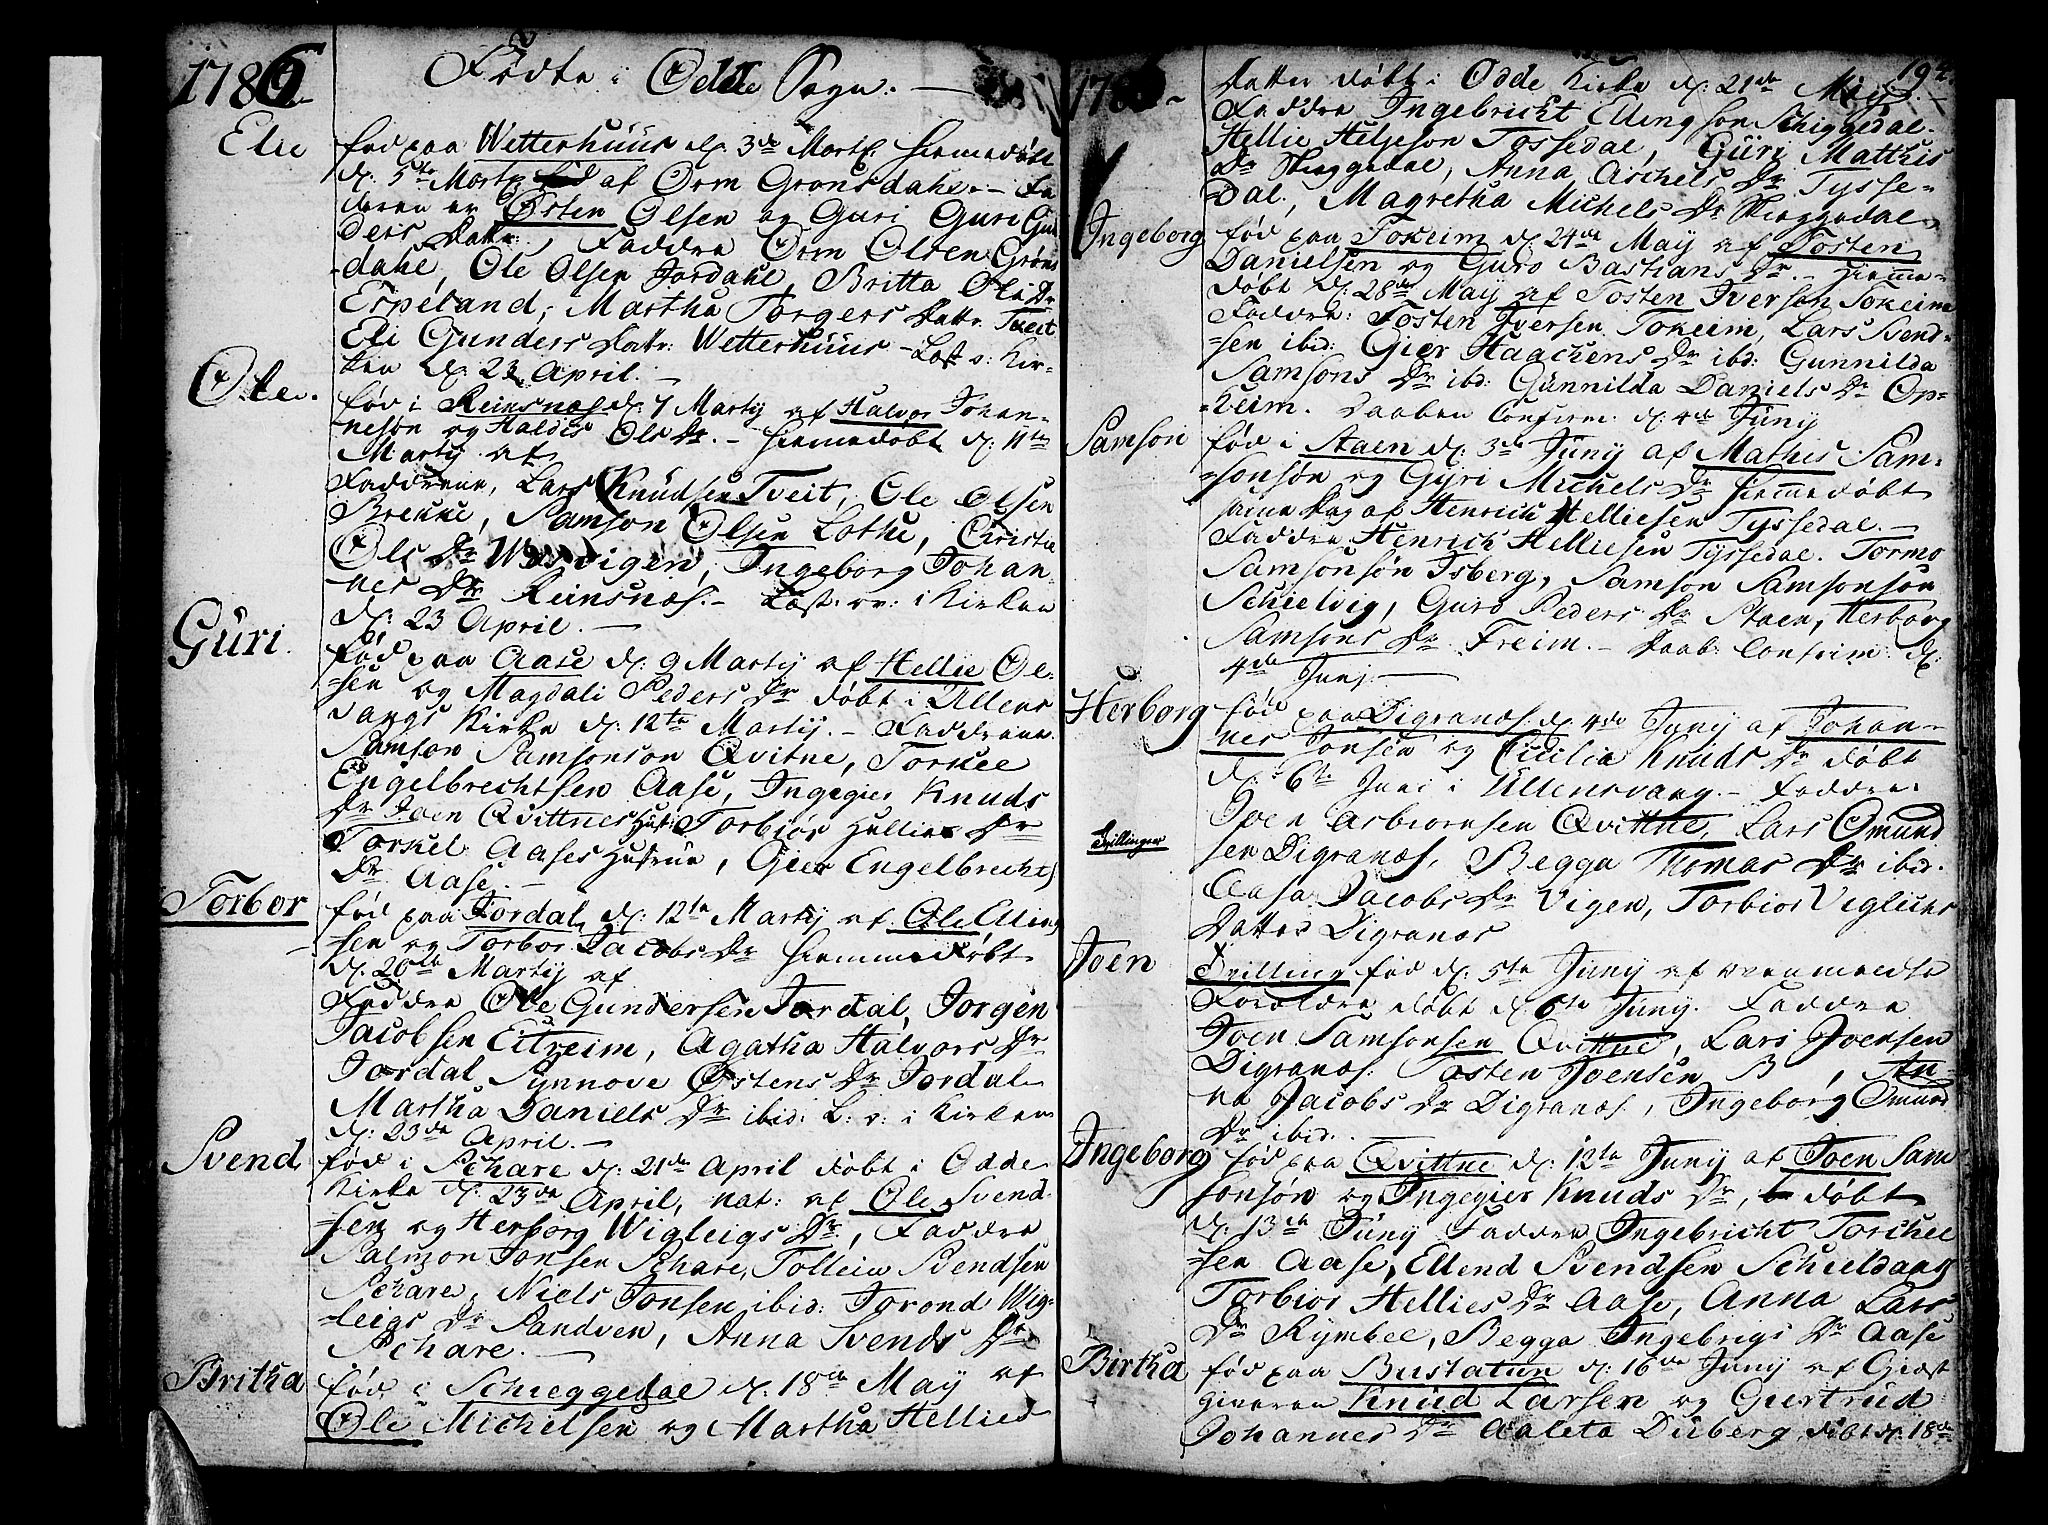 1786
Fødte i Odde Sogn. —
Elie
fød paa Wetterhuus d. 3de Martj. hiemmedøbt
d. 5te Martj af Orm Gronsdahl. – Fa
deren er Østen Olsen og Guri Guri Gun
ders Datter, Faddre Orm Olsen Grøns
-dahl, Ole Olsen Jordahl, Britta Ols Dr
Espeland, Martha Torgers Dattr. Tveit
Eli Gunders Dattr: Wetterhuus – Læst v: Kir-
ken d. 23 April. —
Ole.
fød i Reinsnæs d. 7 Martij af Halvor Johan-
nesøn og Haldis Ols Dr. – hiemmedøbt d. 11te
Martij af
Faddrene, Lars Knudsen Tveit, Ole Olsen
Brekke, Samson Olsen Lothe, Christie
Ols Dr Wigen, Ingeborg Johan-
nes Dr Reinsnæs. – Læst. ov: i Kirken
d. 23 April. —
Guri.
fød paa Aase d. 9 Martij af Hellie Ol-
sen og Magdali Peders Dr døbt i Ullens
vangs Kirke d. 12te Martij. – Faddrene
Samson Samsonson Qvitne, Torkel
Engelbrechtsen Aase, Ingegier Knuds
Dr Joen Qvittnes Hust: Torbiør Hellies Dr
Torkel Aases Hustrue, Gier Engelbrechts
Dr Aase. —
Torbor
fød paa Jordal, d. 12te Martij af Ole Ellings
sen og Torbor Jacobs Dr hiemmedøbt
d. 20de Martij af
Faddre Ole Gundersen Jordal, Jorgen
Jacobsen Eitreim, Agatha Halvors Dr
Jordal Synnove Østens Dr Jordal
Martha Daniels Dr ibid: L: v: i Kirken
d. 23de April. —
Svend
fød i Schare d. 21de April døbt i Odde
Kirke d. 23de April, nat: af Ole Svend-
sen og Herborg Wigleigs Dr, Faddre
Salmon Jonsen Schare, Tollein Svendsen
Schare, Niels Jonsen ibid: Jorond Wig-
leigs Dr Sandven, Anna Svends Dr
Schare. —
Britha
fød i Schieggedal d. 18de May af
Ole Michelsen og Martha Hellies
1786
194.
Datter døbt i Odde Kirke d. 21de Maij. –
Faddre Ingebricht Ellingsøn Schiggedal.
Hellie Heljeson Tossedal, Guri Matthis
Dr Skeggedal, Anna Aschels Dr Tysse-
dal, Magretha Michels Dr Skeggedal.
Ingeborg
fød paa Tokeim d. 24de May af Tosten
Danielsen og Guro Bastians Dr. – hiemme-
døbt d. 28de May af Tosten Iverson Tokeim
Faddre: Tosten Iversen Tokeim, Lars Svend-
sen ibid: Gier Haachens Dr ibd: Gunnilda
Samsons Dr ibd: Gunnilda Daniels Dr Op-
heim. Daaben Confirm. d. 4de Juny
Samson
fød i Staen d. 3de Juny af Mathis Sam-
sonsøn og Gyri Michels Dr hiemmedøbt
samme Dag af Henrich Helliesen Tyssedal. –
Faddre Henrich Helliesen Tyssedal. Tormo
Samsonsøn Isberg, Samson Samsonsøn
Schielvig, Guro Peders Dr Staen, Herborg
Samsons Dr Freim. – Daab: Confrim: d.
4de Junj. —
Herborg
fød paa Digranæs d. 4de Juny af Johan-
nes Jonsen og Cicilia Knuds Dr døbt
d. 6te Juni i Ullensvang. – Faddre
Joen Asbiornsen Qvittne, Lars Omund
sen Digranæs, Begga Thomas Dr ibid.
Aasa Jacobs Dr Vigen, Torbior Viglichs
Datter Digranæs
Tvillinger
Joen
Tvilling fød d. 5te Juny af ovenmeldte
Foreldre døbt d. 6te Juny. Faddre
Joen Samsonsen Qvittne, Lars Joensen
Digranæs. Tosten Joensen B, An-
na Jacobs Dr Digranæs, Ingeborg Omund
Dr ibid.
Ingeborg
fød paa Qvittne d. 12te Juny af Joen Sam
sonsøn og Ingegier Knuds Dr, døbt
d. 13de Juny Faddre Ingebricht Torchel
sen Aase, Ellend Svendsen Schieldaas
Torbior Hellies Dr Aase, Anna Lars
Dr Rymbee, Begga Ingebrigs Dr Aase
Birtha
fød paa Bustatun d. 16de Juny af Giæst
giveren Knud Larsen og Gurtrud
Johannes Dr Aaleta Duberg, døbt d. 18de